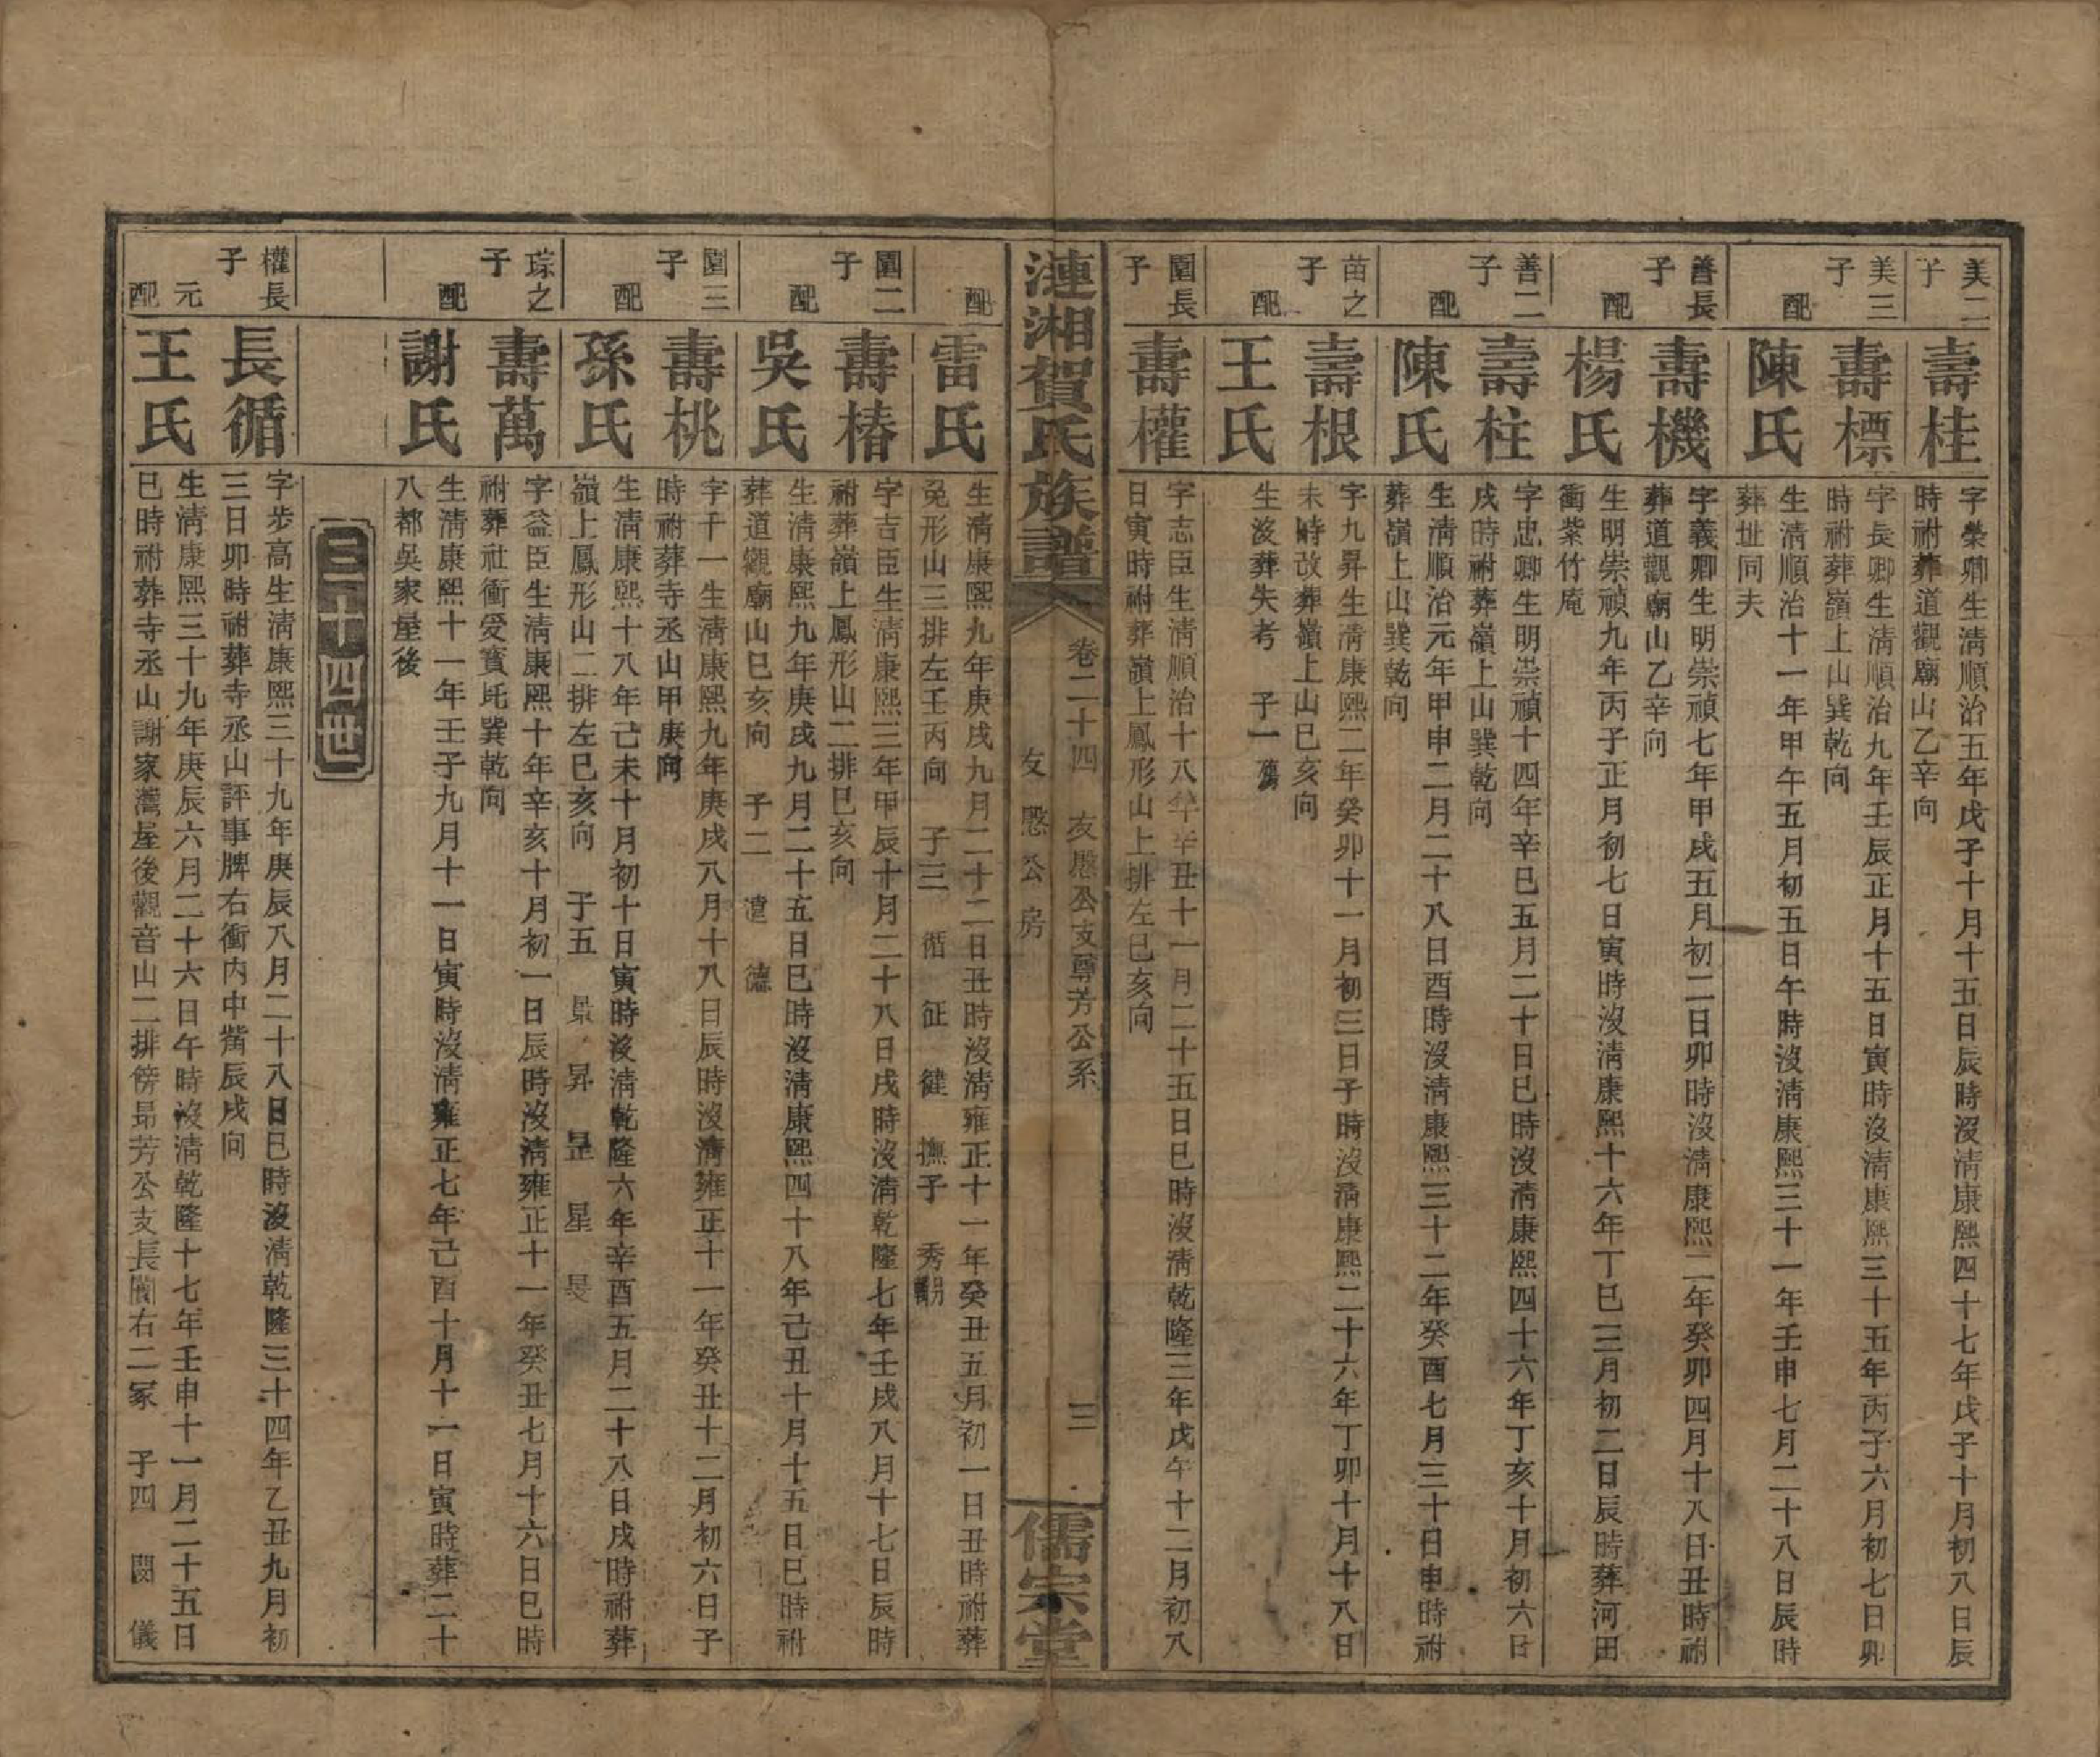 美二子
壽桂
字榮卿生淸順治五年戊子十月十五日辰時沒淸康熙四十七年戊子十月初八日辰
時祔葬道觀廟山乙辛向
美三子
壽標
字長卿生淸順治九年壬辰正月十五日寅時沒淸康熙三十五年丙子六月初七日卯
時祔葬嶺上山巽乾向
配
陳氏
生淸順治十一年甲午五月初五日午時沒淸康熙三十一年壬申七月二十八日辰時
葬址同夫
善長子
壽機
字義卿生明崇禎七年甲戌五月初二日卯時沒淸康熙二年癸卯四月十八日丑時祔
葬道觀廟山乙辛向
配
楊氏
生明崇禎九年丙子正月初七日寅時沒淸康熙十六年丁巳三月初二日辰時葬河田
衝紫竹庵
善二子
壽柱
字忠卿生明崇禎十四年辛巳五月二十日巳時沒淸康熙四十六年丁亥十月初六日
戌時祔葬嶺上山巽乾向
配
陳氏
生淸順治元年甲申二月二十八日酉時沒淸康熙三十二年癸酉七月三十日申時祔
葬嶺上山巽乾向
苗之子
壽根
字九昇生淸康熙二年癸卯十一月初三日子時沒淸康熙二十六年丁卯十月十八日
未時改葬嶺上山巳亥向
配
王氏
生沒葬失考 子一
園長子
壽權
字志臣生淸順治十八年辛丑十一月二十五日巳時沒淸乾隆三年戊午十二月初八
日寅時祔葬嶺上鳳形山上排左巳亥向
漣湘賀氏族譜
卷二十四 友愍公支尊芳公系
友愍公房
三
儒宗堂
配
雷氏
生淸康熙九年庚戌九月二十二日丑時沒淸雍正十一年癸丑五月初一日丑時祔葬
兔形山三排左壬丙向 子三 循 征 徤 撫子 秀
園二子
壽椿
字吉臣生淸康熙三年甲辰十月二十八日戌時沒淸乾隆七年壬戌八月十七日辰時
祔葬嶺上鳳形山二排巳亥向
配
吳氏
生淸康熙九年庚戌九月二十五日巳時沒淸康熙四十八年己丑十月十五日巳時祔
葬道觀廟山巳亥向 子二 德
園三子
壽桃
字千一生淸康熙九年庚戌八月十八日辰時沒淸雍正十一年癸丑十二月初六日子
時祔葬寺丞山甲庚向
配
孫氏
生淸康熙十八年己未十月初十日寅時沒淸乾隆六年辛酉五月二十八日戌時祔葬
嶺上鳳形山二排左巳亥向 子五 景 昇 昰 星 旻
琮之子
壽萬
字益臣生淸康熙十年辛亥十月初一日辰時沒淸雍正十一年癸丑七月十六日巳時
祔葬社衝受賓坉巽乾向
配
謝氏
生淸康熙十一年壬子九月十一日寅時沒淸雍正七年己酉十月十一日寅時葬二十
八都吳家屋後
三十四世
權長子
長循
字步高生淸康熙三十九年庚辰八月二十八日巳時沒淸乾隆三十四年乙丑九月初
三日卯時祔葬寺丞山評事脾右衝內中觜辰戌向
元配
王氏
生淸康熙三十九年庚辰六月二十六日午時沒淸乾隆十七年壬申十一月二十五日
巳時祔葬寺丞山謝家灣屋後觀音山二排傍昻芳公支長閣右二冢 子四 閔 儀